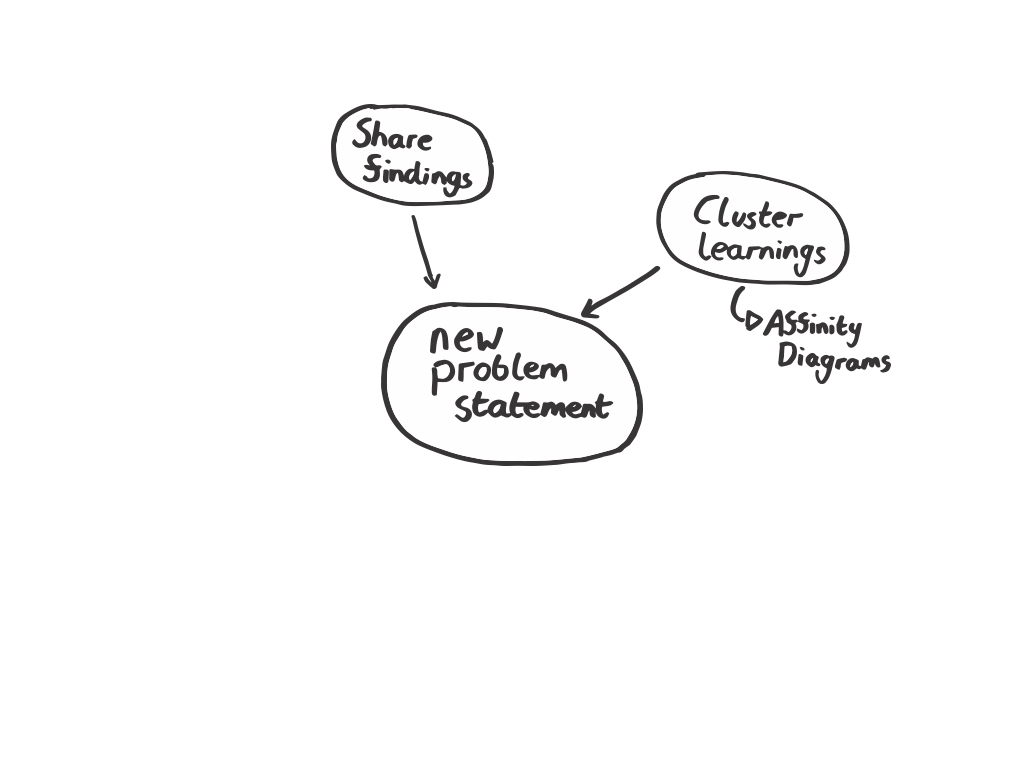 Share
findings
Cluster
learnings
Affinity
Diagrams
new
problem
statement